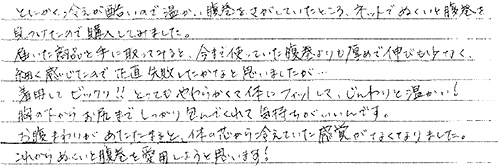 とにかく、冷えが酷いので温かい腹巻をさがしていたところ、ネットでぬくいと腹巻を
見つけたので購入してみました。
届いた商品を手に取ってみると、今まで使っていた腹巻よりも厚めで伸びも少なく、
細く感じたので正直失敗したかなと思いましたが…
着用して ビックリ!! とってもやわらかくて体にフィットして、じんわりと温かい!
胸の下からお尻まで しっかり包んでくれて気持ちがいいんです。
お腹まわりが あたたまると、体の芯から冷えていた感覚がなくなりました。
これからもぬくいと腹巻を愛用しようと思います!